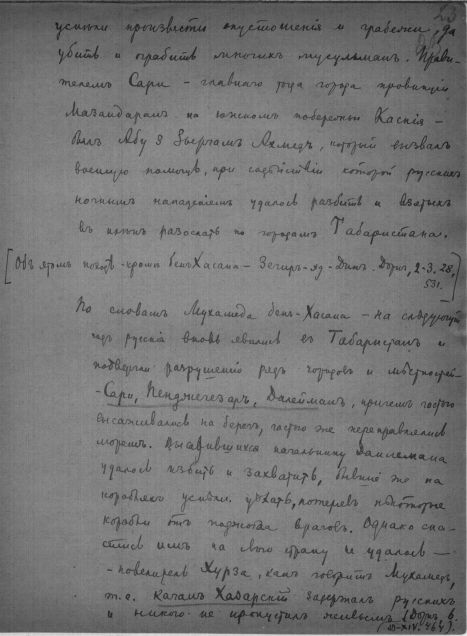 успѣли произвести опустошенія и грабежи, да
убить и ограбить многихъ мусульманъ. Прави-
телемъ Сари - главнаго тогда города провинціи
Мазандаранъ на южномъ побережьи Каспія -
былъ Абу З Зьергамъ Ахмедъ, который вызвалъ
военную помощь, при содѣйствіи которой русскихъ
ночнымъ нападеніемъ удалось разбить и взятыхъ
въ плѣнъ разослать по городамъ Табаристана.
[Объ этомъ походѣ - кромѣ бенъ Хасана - Зегиръ-яд-Динъ. Дорнъ, 2-3. 28,
531.
По словамъ Мухамеда бенъ-Хасана - на слѣдующій
годъ русскіе вновь явились въ Табаристанъ и
подвергли разрушенію рядъ городовъ и мѣстностей-
-Сари, Пенджегезаръ, Дилейманъ, причемъ частью
высаживались на берегъ, частью же переправлялись
моремъ. Высадившихся начальнику Даилемана
удалось избить и захватить, бывшіе же на
корабляхъ успѣли уѣхать, потерявъ нѣкоторые
корабли отъ поджога враговъ. Однако спа-
стись имъ на свою страну не удалось —
- повелитель Хурза, какъ говоритъ Мухамедъ,
т.е. Каганъ Хазарскій задержалъ русскихъ
и никого не пропустилъ живымъ (Дорнъ, 6.
XIV. 464).